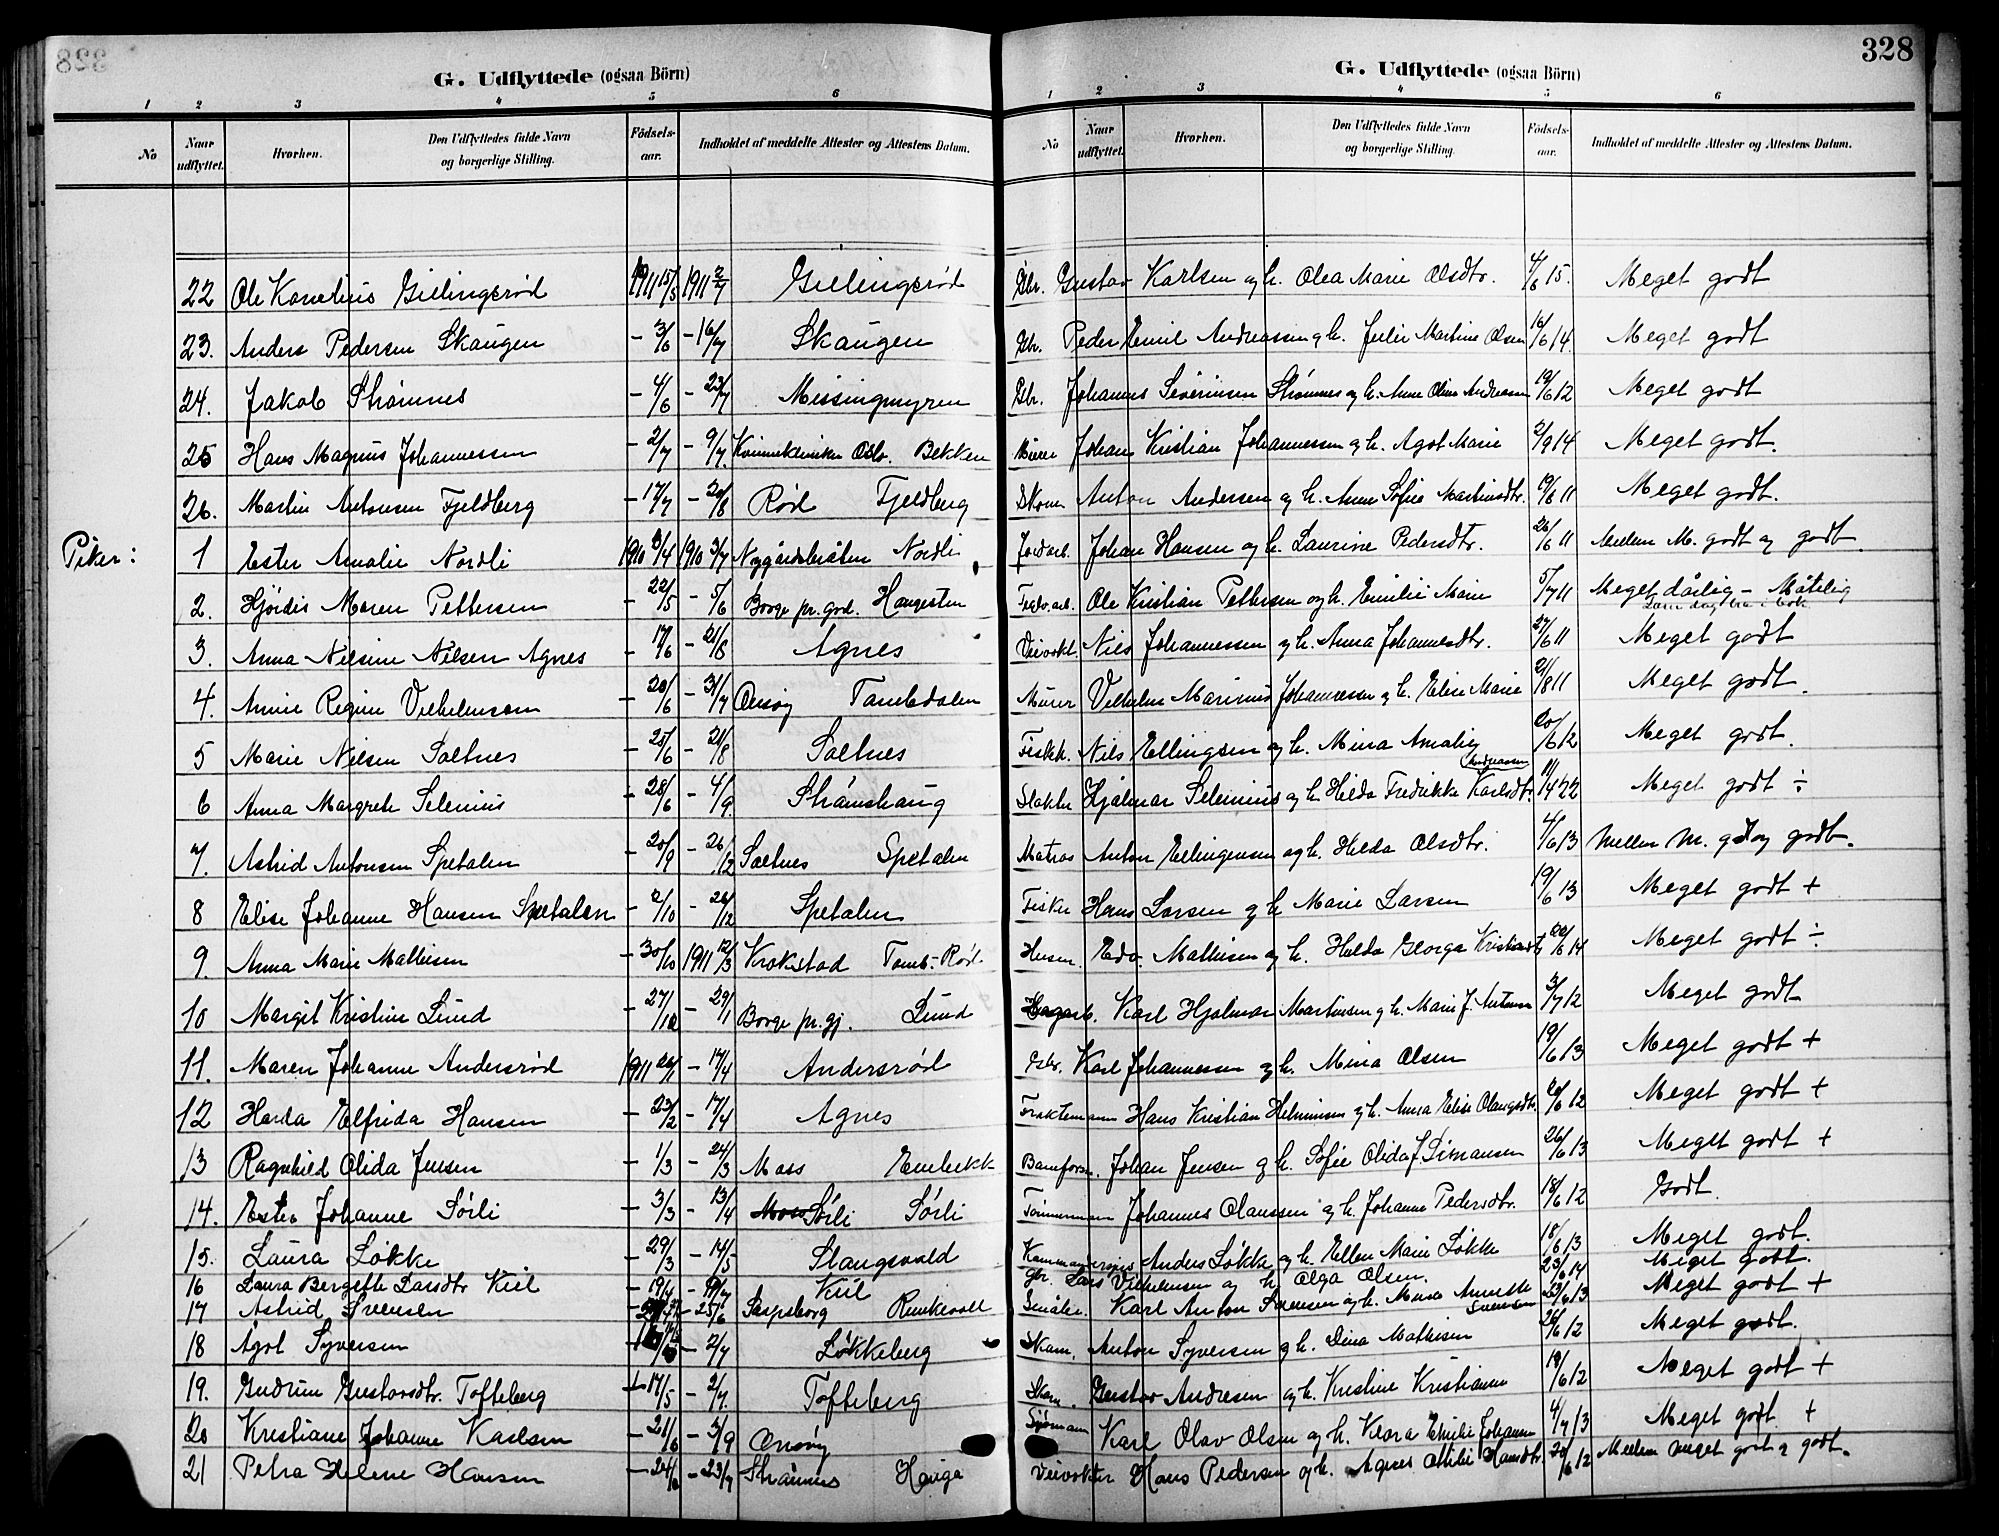 328
G. Udflyttede (ogsaa Börn)
1 2 3 4 5 6
No Naar udflyttet. Hvorhen. Den Udflyttedes fulde Navn og borgerlige Stilling. Födsels-aar. Indholdet af meddelte Attester og Attestens Datum.
22 Ole Kornelius Gillingsrød 1911 15/5 1911 2/7 Gillingsrød
23. Anders Pedersen Skaugen - 3/6 - 16/7 Skaugen
24. Jakob Strømnes - 4/6 - 23/7 Missingmyren
25 Hans Magnus Johannessen - 2/7 - 9/7 Kvinneklinikken Oslo. Bekken
26. Martin Antonsen Fjeldberg - 17/7 - 20/8 Rød Fjeldberg
Piker: 1 Ester Amalie Nordli 1910 3/4 1910 3/7 Nygårdsbråten Nordli
2. Hjørdis Maren Pettersen - 22/5 - 5/6 Borge pr. god. Haugesten
3. Anna Nilsine Nilsen Agnes - 17/6 - 21/8 Agnes
4. Annie Regine Vilhelmsen - 20/6 - 31/7 Onsøy Tombdalen
5 Marie Nilsen Saltnes - 25/6 - 21/8 Saltnes
6 Anna Margrete Selenius - 28/6 - 4/9. Strømshaug
7. Astrid Antonsen Spetalen - 20/9 - 26/12 Saltnes Spetalen
8 Elise Johanne Hansen Spetalen - 2/10 - 26/12 Spetalen
9 Anna Marie Mathisen - 30/10 1911 12/3 Krokstad Tomb - Rød.
10 Margit Kristine Lund - 27/12 - 29/1 Borge pr. gj. Lund
11. Maren Johanne Andersrød 1911 20/1 - 17/4 Andersrød
12 Harda Elfrida Hansen - 23/2 - 17/4 Agnes
13 Ragnhild Olida Jensen - 1/3 - 24/3 Moss Enebekk
14. Ester Johanne Sørli - 3/3 - 13/4 Moss Sørli Sørli
15. Laura Løkke - 29/3 - 14/5 Slangsvold
16 Laura Bergitte Larsdtr Kiil Kiil
17 Astrid Svensen - 25/6 Sarpsborg
18 Ågot Syversen - 2/7 Løkkeberg
19. Gudrun Gustavsdtr. Tofteberg - 17/5 - 2/7. Tofteberg
20 Kristiane Johanne Karlsen - 21/6 - 3/9 Onsøy
21 Petra Helene Hansen - 24/6 - 23/7 Strømnes Hauge
328
G. Udflyttede (ogsaa Börn)
1 2 3 4 5 6
No Naar udflyttet. Hvorhen. Den Udflyttedes fulde Navn og borgerlige Stilling. Födsels-aar. Indholdet af meddelte Attester og Attestens Datum.
Gbr. Gustav Karlsen og h. Olea Marie Olsdtr. 4/6 15. Meget godt
Gbr. Peder Emil Andreassen og h. Julie Martine Olsen 16/6 14. Meget godt
Gbr. Johannes Severinsen Strømnes og h. Anne Oline Andreasen 19/6 12 Meget godt
Murer Johan Kristian Johannessen og h. Agot Marie 2/9 14 Meget godt.
Skom Anton Andersen og h. Anne Sofie Martinsdtr. 19/6 11 Meget godt.
Jordarb. Johan Hansen og h. Laurine Pedersdtr. 26/6 11 Mellem M. godt og godt.
Ole Kristian Pettersen og h. Emilie Marie 5/7 11 Meget dårlig - Måtelig
Veivokt. Nils Johannessen og h. Anna Johannesdtr. 27/6 11 Meget godt
Murer Vilhelm Marinus Johannessen og h. Elise Marie 21/8 11 Meget godt.
Fiskh. Nils Ellingsen og h. Mina Amalie Andreassen 20/6 12 Meget godt.
Slakter Hjalmar Selenius og h. Hilda Fredrikke Karlsdtr. 11/4 22 Meget godt ÷
Matros Anton Ellingensen og h. Hilda Olsdtr. 4/6 13 Mellem M. g. og godt.
Fisker Hans Larsen og h. Marie Larsen 19/6 13 Meget godt +
Husm. Edv. Mathisen og h. Hilda Georga Kristiansdtr 20/6 14 Meget godt ÷
Karl Hjalmar Martinsen og h. Marie J. Antonsen 3/7 12 Meget godt
Gbr. Karl Johannessen og h. Mina Olsen 19/6 13 Meget godt +
Fraktemann Hans Kristian Helmimsen og h. Anna Elise Olaugsdtr. 20/6 12 Meget godt +
Baneform. Johan Jensen og h. Sofie Olida J. Simensen 26/6 13 Meget godt +
Tømmermann Johannes Olaussen og h. Johanne Pedersdtr. 18/6 12 Godt.
Anders Løkke og h. Ellen Marie Løkke 18/6 13 Meget godt.
gbr. Lars Vilhelmsen og h. Olga Olsen. 23/6 14 Meget godt.
Småbr. Karl Anton Svensen og h. Mina Annette Svensen 22/6 13 Meget godt +
Skom. Anton Syversen og h. Dina Mathisen 26/6 12 Meget godt.
Skom. Gustav Andresen og h. Kristine Kristianse 18/6 12 Meget godt +
Sjømann Karl Olav Olsen og h. Klara Emilie Johansen 4/7 13 Meget godt. +
Veivokter Hans Pedersen og h. Agnes Otilie Hansdtr. 20/6 12 Mellem meget godt og godt.